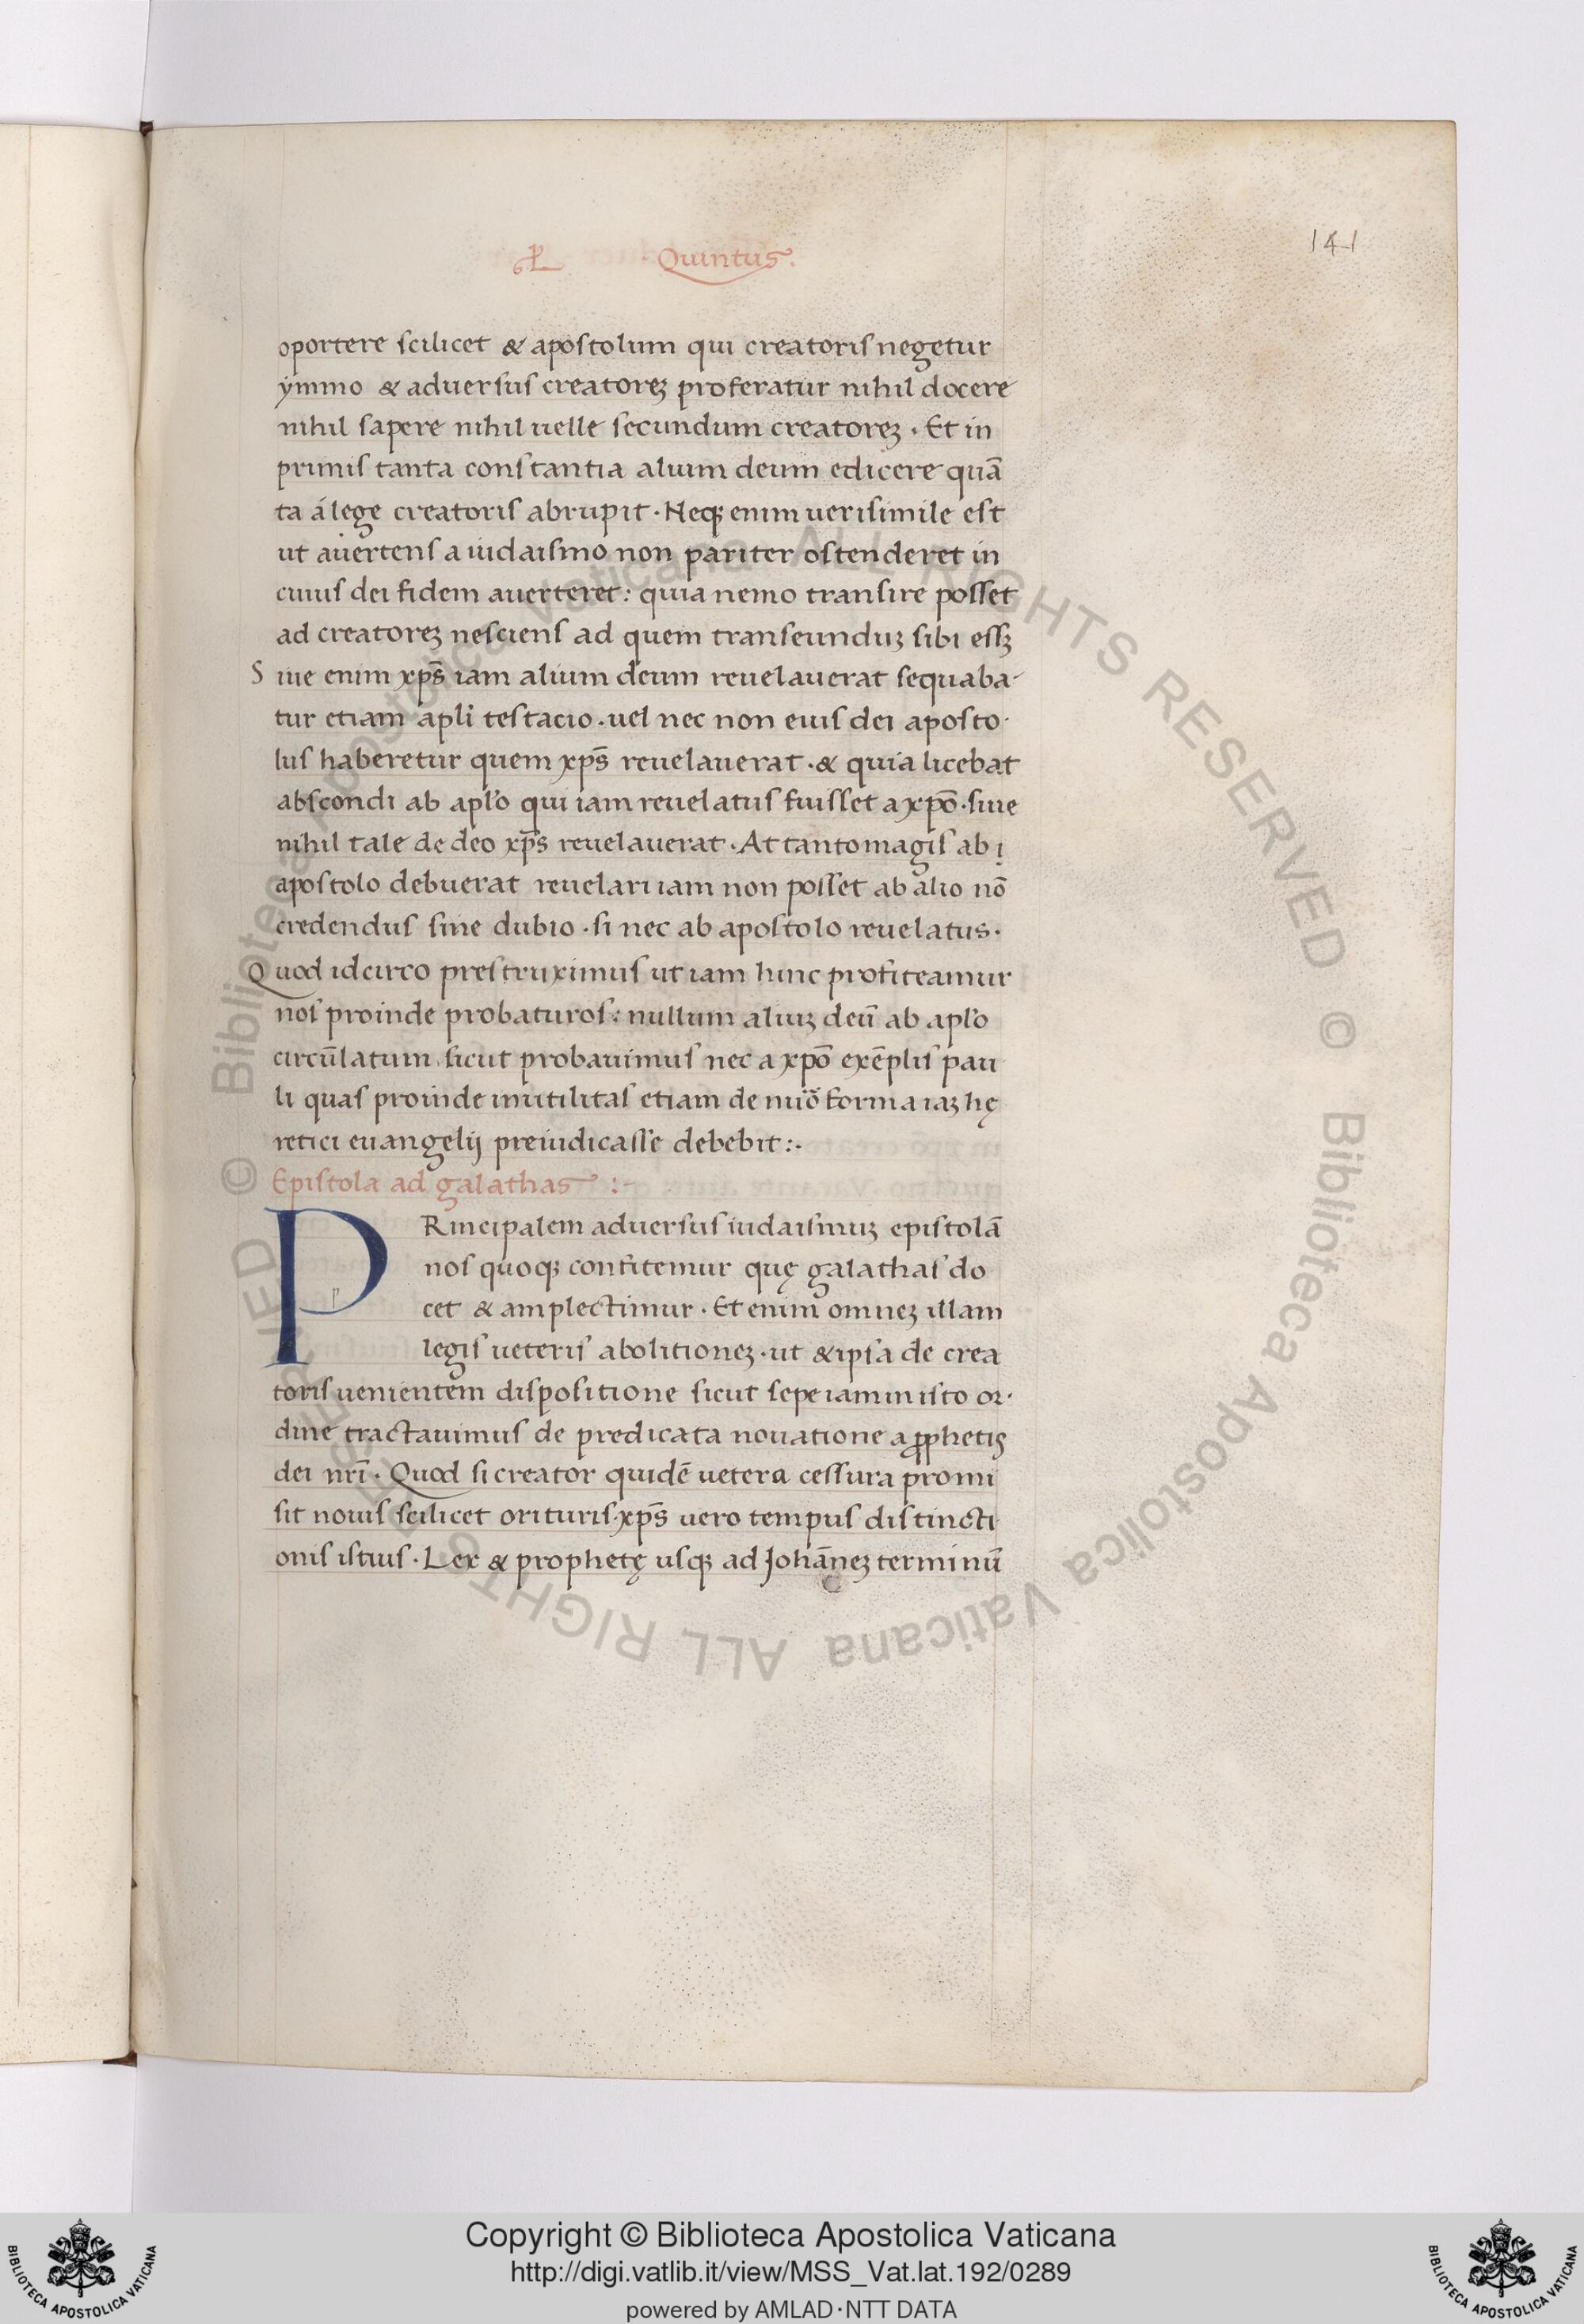 Quintus.
141
oportere scilicet & apostolum qui creatoris negetur
ymmo & adversus creatoreꝫ proferatur nihil docere
nihil sapere nihil velle secundum creatoreꝫ . Et in
primis tanta constantia alium deum edicere quā
ta á lege creatoris abrupit . Neqꝫ enim verisimile est
ut avertens a iudaismo non pariter ostenderet in
cuius dei fidem averteret : quia nemo transire posset
ad creatoreꝫ nesciens ad quem transeunduꝫ sibi essꝫ
Sive enim xp̄s iam alium deum revelaverat sequaba-
tur etiam apli testacio . vel nec non eius dei aposto-
lus haberetur quem xp̄s revelaverat . & quia licebat
abscondi ab apl'o qui iam revelatus fuisset a xpō . sive
nihil tale de deo xp̄s revelaverat . At tanto magis ab i
apostolo debuerat revelari iam non posset ab alio nō
credendus sine dubio . si nec ab apostolo revelatus .
Quod idcirco prestruximus ut iam hinc profiteamur
nos proinde probaturos : nullum aliuꝫ deū ab apl'o
circūlatum sicut probavimus nec a xpō exēplis pau
li quas proinde inutilitas etiam de nūo forma iaꝫ hę
retici euangelij preiudicasse debebit :.
Epistola ad galathas :-
PRincipalem adversus iudaismuꝫ epistolā
nos quoqꝫ confitemur quę galathas do
cet & amplectimur . Et enim omneꝫ illam
legis veteris abolitioneꝫ . ut & ipsa de crea
toris venientem dispositione sicut sepe iam in isto or-
dine tractavimus de predicata novatione a ꝓphetis
dei nr̄i . Quod si creator quidē vetera cessura promi
sit novis scilicet orituris . xp̄s vero tempus distincti
onis istius . Lex & prophetę usqꝫ ad Johāneꝫ terminū
© Biblioteca Apostolica Vaticana ALL RIGHTS RESERVED © Biblioteca Apostolica Vaticana ALL RIGHTS RESERVED
BIBLIOTECA APOSTOLICA VATICANA
Copyright © Biblioteca Apostolica Vaticana
http://digi.vatlib.it/view/MSS_Vat.lat.192/0289
powered by AMLAD·NTT DATA
BIBLIOTECA APOSTOLICA VATICANA